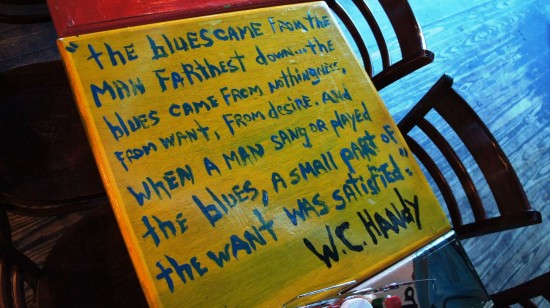 "the bluescame from the
man farthest down...the
blues came from nothingness,
from want, from desire. And
when a man sang or played
the blues, a small part of
the want was satisfied."
W.C. Handy